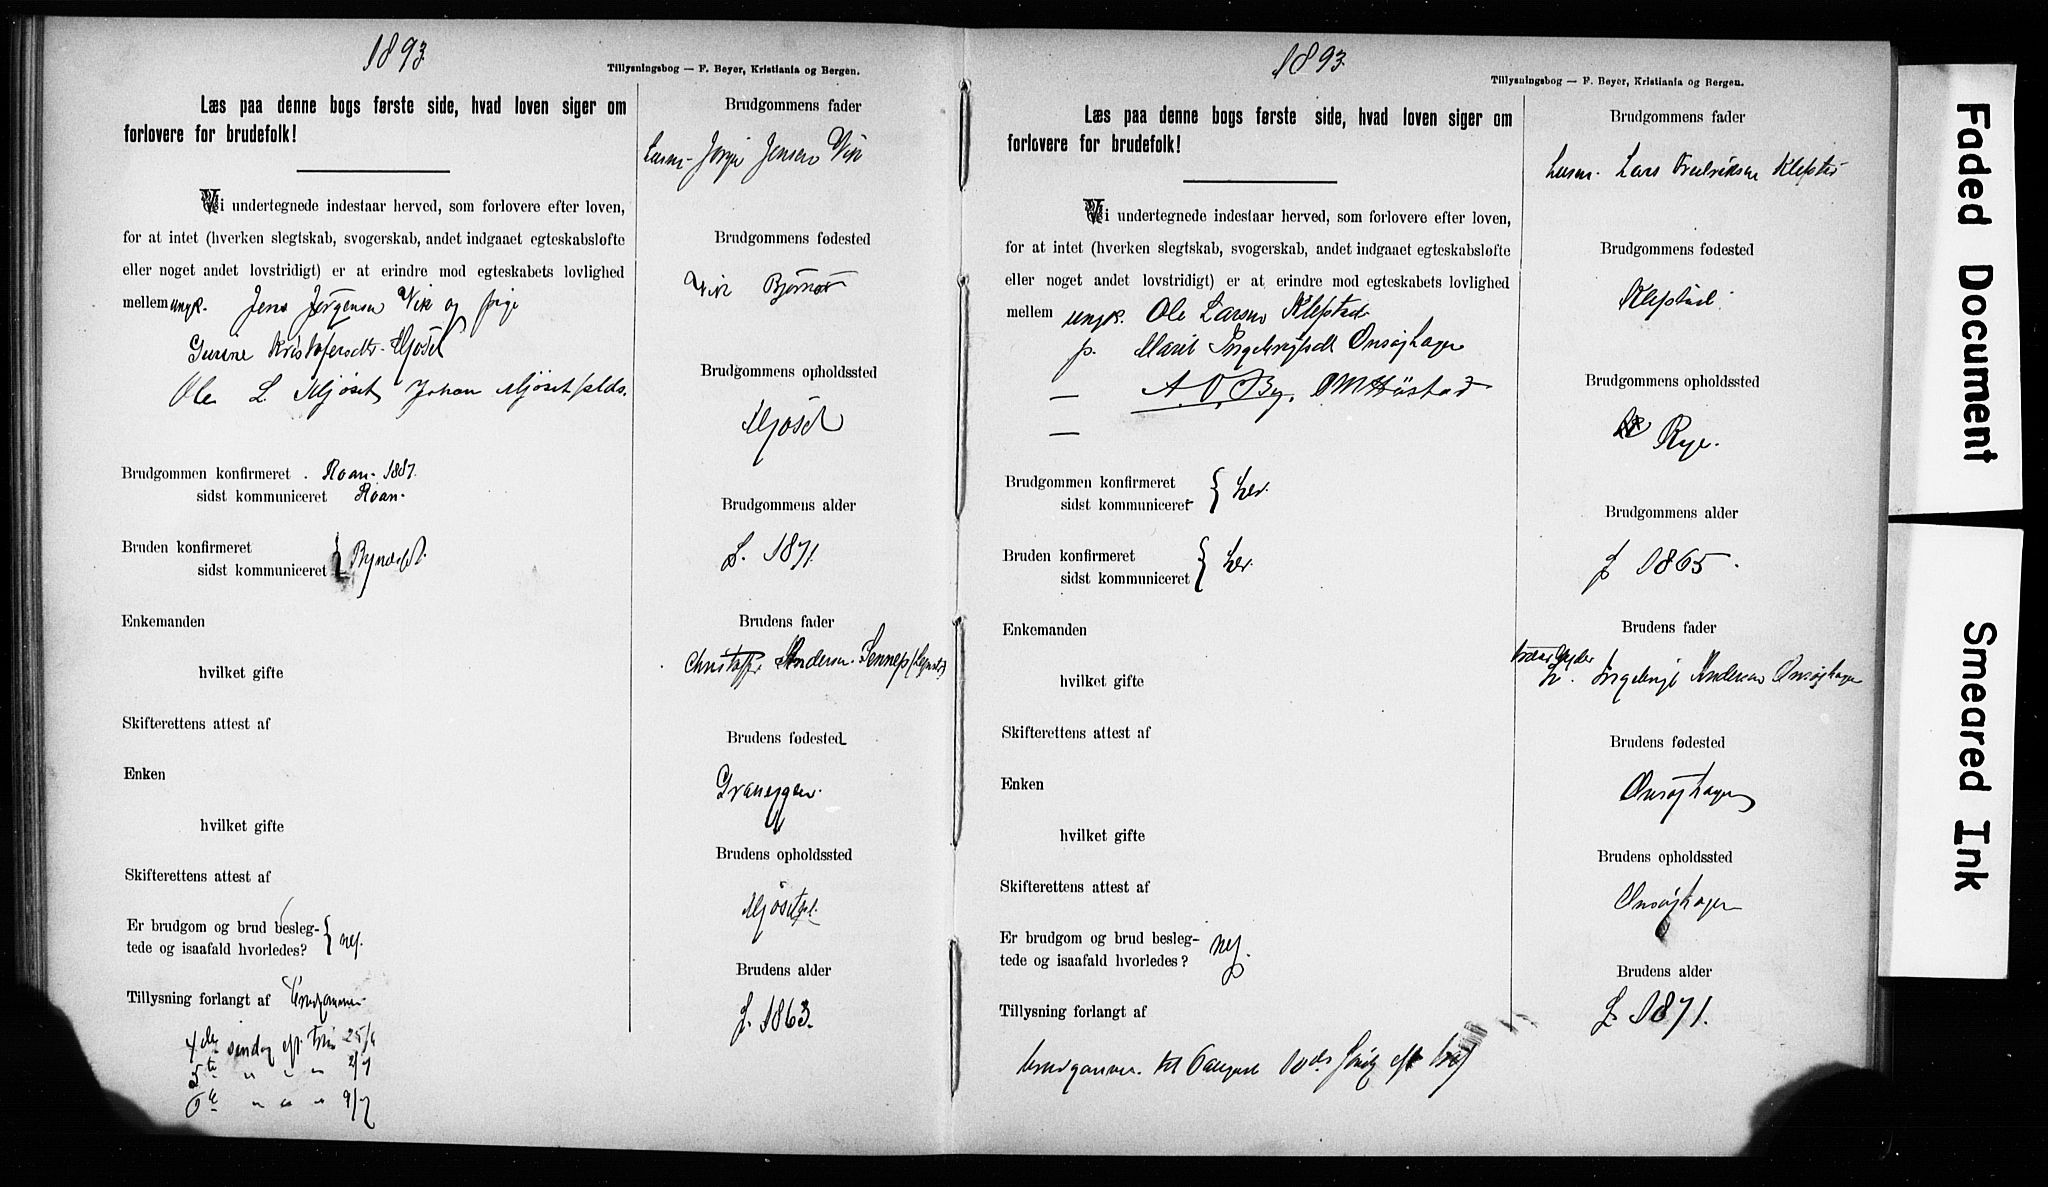 1893
Tillysningsbog — F. Beyer, Kristiania og Bergen.
Læs paa denne bogs første side, hvad loven siger om
forlovere for brudefolk!
Vi undertegnede indestaar herved, som forlovere efter loven,
for at intet (hverken slegtskab, svogerskab, andet indgaaet egteskabsløfte
eller noget andet lovstridigt) er at erindre mod egteskabets lovlighed
mellem ungk. Jens Jørgensen Vik og pige
Gurine Kristofersdtr. Mjøset
Ole L. Mjøset Johan Mjøset
Brudgommen konfirmeret . Roan 1887.
sidst kommuniceret Roan.
Bruden konfirmeret
sidst kommuniceret } Bynæsset.
Enkemanden
hvilket gifte
Skifterettens attest af
Enken
hvilket gifte
Skifterettens attest af
Er brudgom og brud besleg-
tede og isaafald hvorledes? } nej.
Tillysning forlangt af Brudgommen
4de søndag eft Trin 25/6
5te " " " 2/7
6te " " " 9/7
Brudgommens fader
Jørgen Jensen Vik
Brudgommens fødested
Vik Bjørnør
Brudgommens opholdssted
Mjøset
Brudgommens alder
f. 1871.
Brudens fader
Christoffer Andersen
Brudens fødested
Graneggen.
Brudens opholdssted
Mjøset
Brudens alder
f. 1863.
1893
Tillysningsbog — F. Beyer, Kristiania og Bergen.
Læs paa denne bogs første side, hvad loven siger om
forlovere for brudefolk!
Vi undertegnede indestaar herved, som forlovere efter loven,
for at intet (hverken slegtskab, svogerskab, andet indgaaet egteskabsløfte
eller noget andet lovstridigt) er at erindre mod egteskabets lovlighed
mellem ungk. Ole Larsen Klefstad
p. Marit Ingebrigtsdt Onsøjhagen
— A. O. By. O M Høstad
—
Brudgommen konfirmeret
sidst kommuniceret } her.
Bruden konfirmeret
sidst kommuniceret } her.
Enkemanden
hvilket gifte
Skifterettens attest af
Enken
hvilket gifte
Skifterettens attest af
Er brudgom og brud besleg-
tede og isaafald hvorledes? nej.
Tillysning forlangt af
brudgommen til 6 august 10de Sønd eft
Brudgommens fader
Lars Fredriksen Klefstad
Brudgommens fødested
Klefstad.
Brudgommens opholdssted
Rye.
Brudgommens alder
f 1865.
Brudens fader
Ingebrigt Andersen Onsøjhagen
Brudens fødested
Onsøjhagen
Brudens opholdssted
Onsøjhagen
Brudens alder
f. 1871.
Faded Document
Smeared Ink